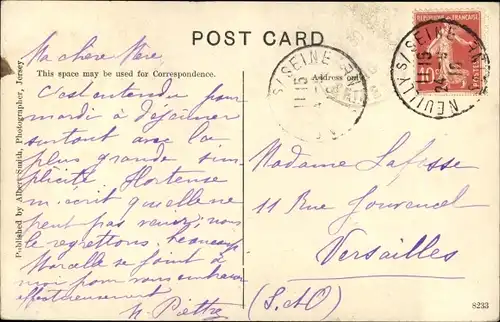 POST CARD
This space may be used for Correspondence.
Address only
Published by Albert Smith, Photographer, Jersey.
Ma chère Mère
C'est entendu pour
mardi à déjeuner
surtout avec la
plus grande sim
plicité Hortense
m'écrit qu'elle ne
peut pas venir, nous
le regrettons beaucoup
Marcelle se joint à
moi pour vous embrasser
affectueusement
Madame Lafosse
11 Rue Jouvencel
Versailles
(S.&O)
NEUILLY S/SEINE
11 15
24
10
S/SEINE
11 15
REPUBLIQUE FRANÇAISE
10
8233